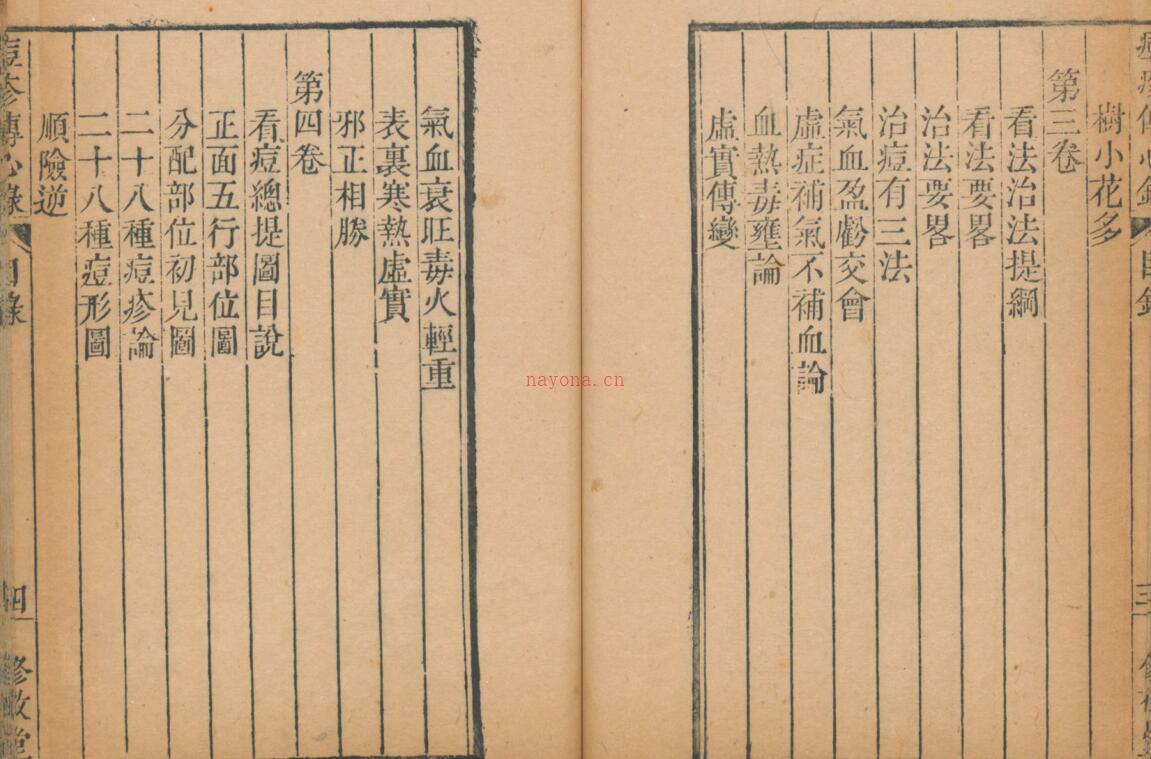 樹小花多
第三卷
看法治法提綱
看法要畧
治法要畧
治痘有三法
氣血盈虧交會
虛症補氣不補血論
血熱毒壅論
虛實傳變
氣血衰旺毒火輕重
表裏寒熱虛實
邪正相勝
第四卷
看痘總提圖目說
正面五行部位圖
分配部位初見圖
二十八種痘疹論
二十八種痘形圖
順險逆
痘疹傳心錄 目錄 四 修敬堂
nayona.cn